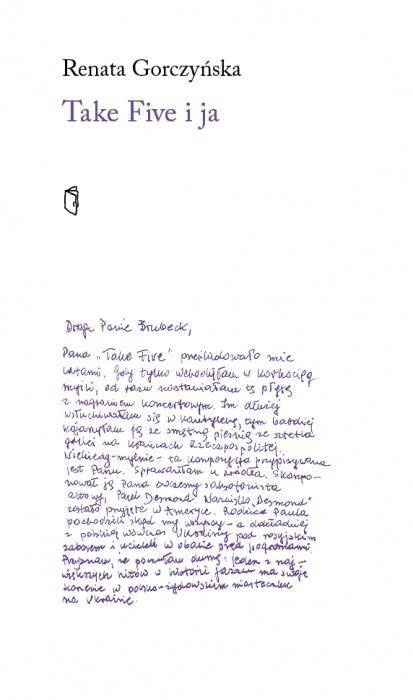 Renata Gorczyńska
Take Five i ja
Drogi Panie Brubeck,
Pana „Take Five” prześladowało mnie
latami. Gdy tylko wchodziłam w
myśli, od razu nastawiałam tę płytę
z nagraniem koncertowym. Im dłużej
wsłuchiwałam się w kantylenę, tym bardziej
kojarzyłam ją ze smętną pieśnią ze sztetla
gdzieś na krańcach Rzeczpospolitej.
Niekiedy - mylnie - ta kompozycja przypisywana
jest Panu. Sprawdzałam u źródła. Skompo-
nował ją Pana ówczesny saksofonista
altowy, Paul Desmond. Nazwisko „Desmond”
zostało przyjęte w Ameryce. Rodzice Paula
pochodzili skąd my wszyscy - a dokładniej
z polskiej wówczas Ukrainy pod rosyjskim
zaborem i uciekli w obawie przed pogromami.
Przyznam, że poczułam dumę: jeden z naj-
większych hitów w historii jazzu ma swoje
korzenie w polsko-żydowskim miasteczku
na Ukrainie.